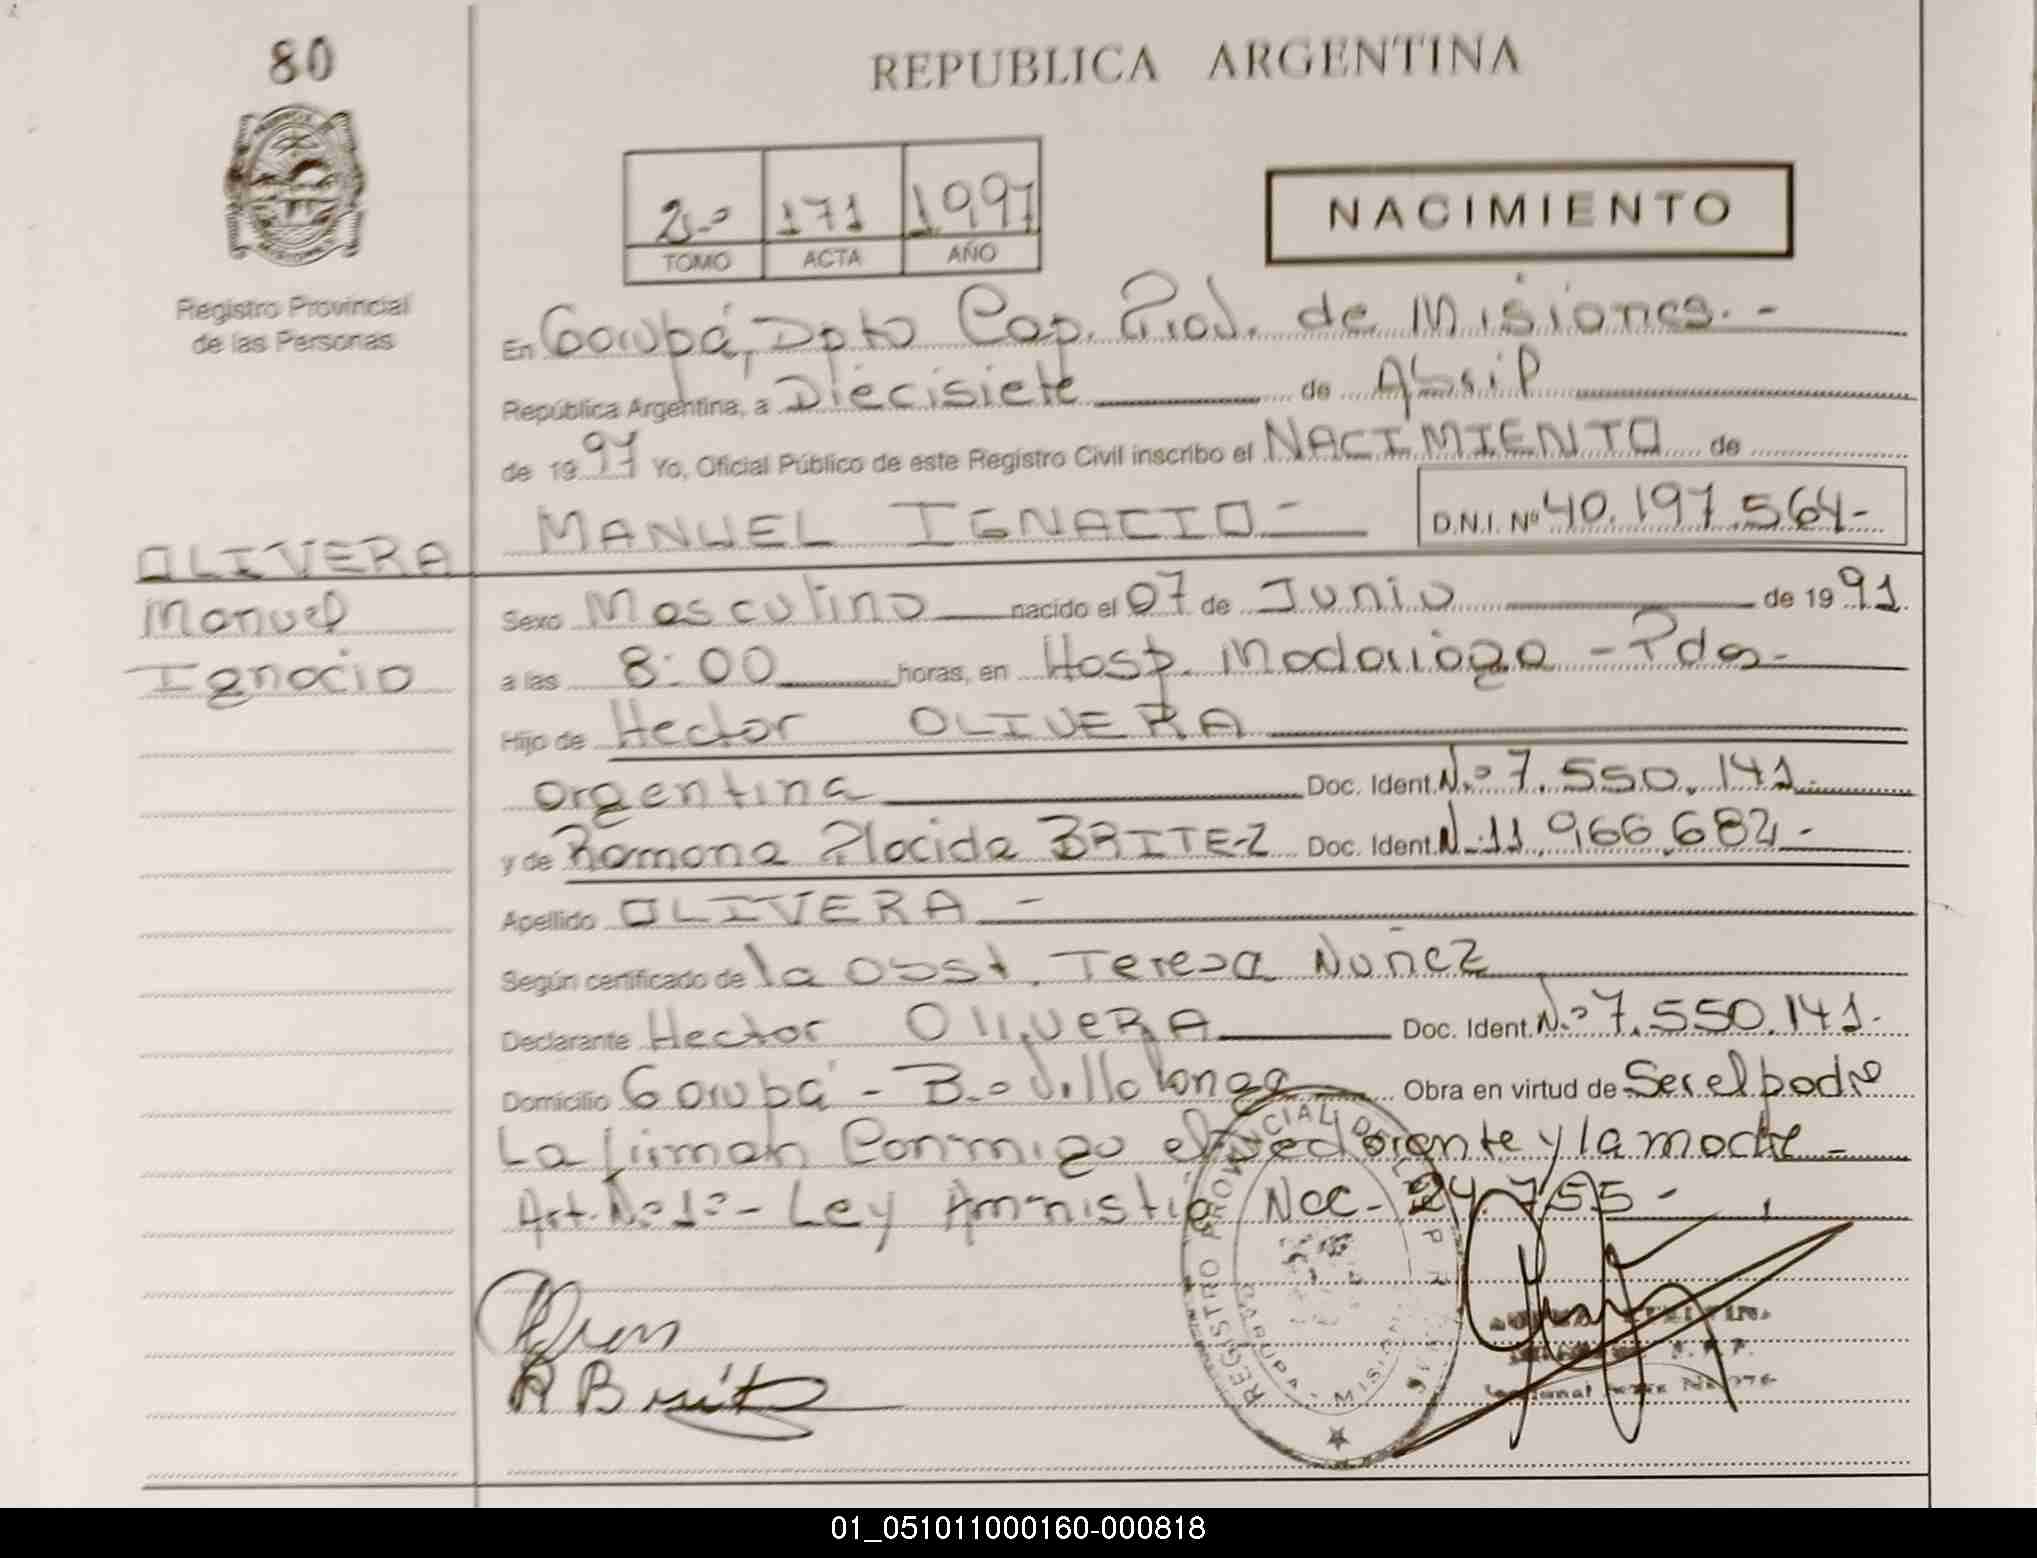 80
REPUBLICA ARGENTINA
2º 171 1997
TOMO ACTA AÑO
NACIMIENTO
Registro Provincial
de las Personas
En Garupá, Dpto Cap. Prov. de Misiones.-
República Argentina, a Diecisiete de Abril
de 1997 Yo, Oficial Público de este Registro Civil inscribo el NACIMIENTO de
MANUEL IGNACIO - D.N.I. Nº 40.197.564-
OLIVERA
Manuel
Ignacio
Sexo Masculino nacido el 07 de Junio de 1991
a las 8:00 horas, en Hosp. Madariaga - Pdas-
Hijo de Hector OLIVERA
argentina Doc. Ident. Nº 7.550.141.
y de Ramona Placida BRITEZ Doc. Ident. N. 11.966.682-
Apellido OLIVERA -
Según certificado de la Obst. Teresa Nuñez
Declarante Hector OliVeRA Doc. Ident. Nº 7.550.141.
Domicilio Garupá - B.º Villalonga Obra en virtud de Ser el padre
La firman Conmigo el declarante y la madre -
Art. Nº 1º - Ley Amnistia Nac - 24.755 -
R Britez
REGISTRO PROVINCIAL DE
GARUPA - MISIONES
01_051011000160-000818